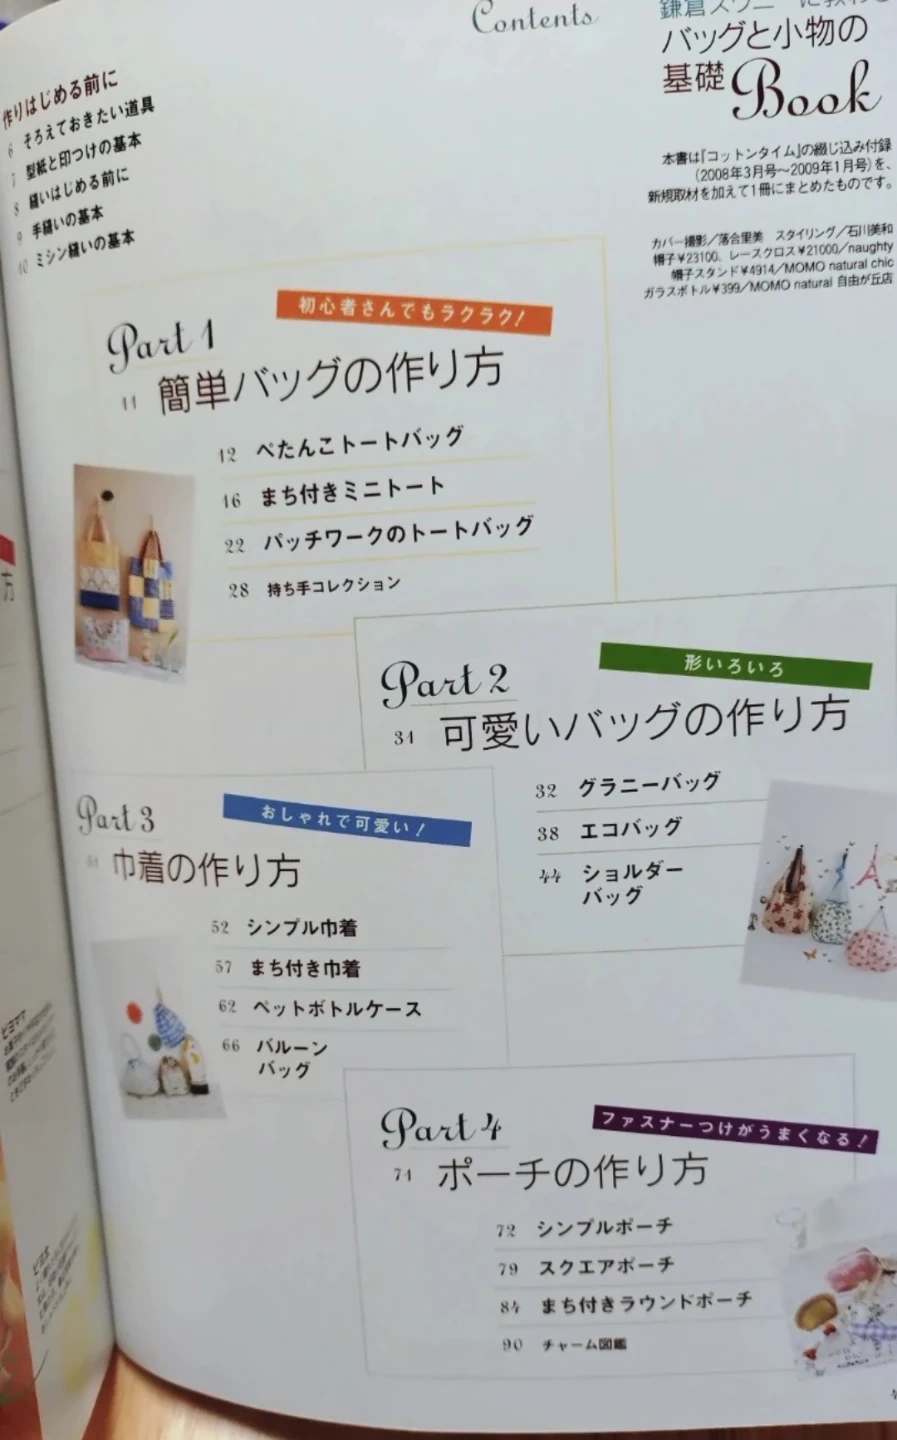 Contents
バッグと小物の
基礎 Book
本書は『コットンタイム』の綴じ込み付録
(2008年3月号〜2009年1月号)を、
新規取材を加えて1冊にまとめたものです。
カバー撮影/落合里美 スタイリング/石川美和
帽子¥23100、レースクロス¥21000/naughty
帽子スタンド¥4914/MOMO natural chic
ガラスボトル¥399/MOMO natural 自由が丘店
作りはじめる前に
6 そろえておきたい道具
7 型紙と印つけの基本
8 縫いはじめる前に
9 手縫いの基本
10 ミシン縫いの基本
初心者さんでもラクラク!
Part 1
11 簡単バッグの作り方
12 ぺたんこトートバッグ
16 まち付きミニトート
22 パッチワークのトートバッグ
28 持ち手コレクション
形いろいろ
Part 2
31 可愛いバッグの作り方
32 グラニーバッグ
38 エコバッグ
44 ショルダー
バッグ
おしゃれで可愛い!
Part 3
51 巾着の作り方
52 シンプル巾着
57 まち付き巾着
62 ペットボトルケース
66 バルーン
バッグ
ファスナーつけがうまくなる!
Part 4
71 ポーチの作り方
72 シンプルポーチ
79 スクエアポーチ
84 まち付きラウンドポーチ
90 チャーム図鑑